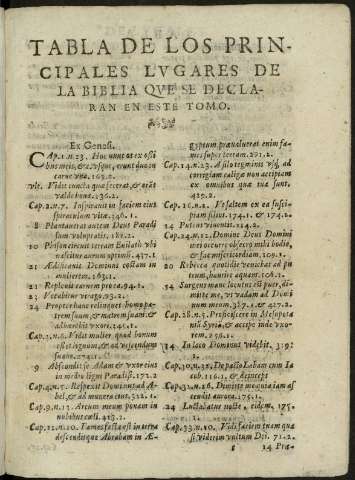 TABLA DE LOS PRIN-
CIPALES LVGARES DE
LA BIBLIA QVE SE DECLA-
RAN EN ESTE TOMO.
Ex Genesi.
CAp. 1. n. 23. Hoc nunc os ex ossi
bus meis, &
carne vna. 169.2.
Vidit cuncta quæ fecerat, & erãt
valde bona. 136.2.
Cap. 2. n. 7. Inspirauit in faciem eius
spiraculum vitæ. 346.1.
8 Plantauerat autem Deus Paradi
sum voluptatis.
10 Phison circuit terram Euilath vbi
nascitur aurum optimũ. 437.1.
21 Aedificauit Dominus costam in
mulierem. 163.1.
21 Repleuit carnem pro ea. 94.1.
2 Vocabitur virago. 93.2.
24 Propter hanc relinquet homo pa-
trem suum, & matrem suam, &
adhærebit vxori. 241.1.
Cap. 3. n. 6. Vidit mulier quod bonum
esset lignum, & ad vescendum
suaue. 274.1.
9 Abscondit se Adam & vxor eius
in medio ligni Paradisi. 172.2.
Cap. 4. n. 5. Respexit Dominus ad A-
bel, & ad munera eius. 322.1.
Cap. 9. n. 13. Arcum meum ponam in
nubibus cæli. 413.2.
Cap. 12. n. 10. Fames facta est in terra
descenditque Abraham in Æ-
gyptum præualuerat enim fa-
mes super terram. 291.2.
Cap. 14. n. 23. A filo tegminis vsq; ad
corrigiam caligæ non accipiam
ex omnibus quæ tua sunt.
429.2.
Cap. 16. n. 2. Vt saltem ex ea su-
piam filios. 174.1. & 174.2.
14 Puteus viuentis. 114.2.
Cap. 24. n. 12. Domine Deus Domini
mei occurre obsecro mihi hodie,
& fac misericordiam. 109.1.
20 Rebecca quotidie veniebat ad pu
teum, haurire aquam. 168.1.
54 Surgens mane locutus est puer, di-
mitte me, vt vadam ad Domi
num meum. 387.1. & 427.2.
Cap. 28. n. 5. Profectus in Mesopota
niã Syriæ, & accepit inde vxo-
rem. 256.1.
14 In loco Dominus videbit.
2.
Cap. 30. n. 35. De pacto Laban cum Ia
cob. 164.1. & deinceps
Cap. 32. n. 26. Dimitte me quia iam as
cendit aurora. 175.1.
24 Luctabatur nocte, eidem. 175.
1.
Cap. 33. n. 10. Vidi faciem tuam qua
si viderim vultum Dei. 71.2.
14 Præ-